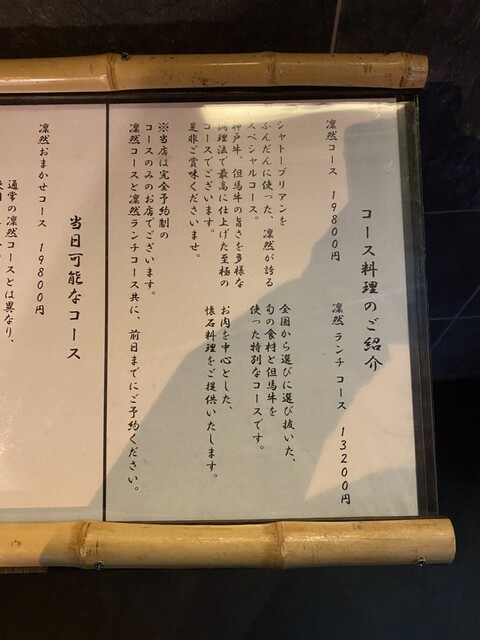 コース料理のご紹介
凛然コース 19800円
シャトーブリアンを
ふんだんに使った、凛然が誇る
スペシャルコース。
神戸牛、但馬牛の旨さを多様な
調理法で最高に仕上げた至極の
コースでございます。
是非ご賞味くださいませ。
凛然ランチコース 13200円
全国から選びに選び抜いた、
旬の食材と但馬牛を
使った特別なコースです。
お肉を中心とした、
懐石料理をご提供いたします。
※当店は完全予約制の
コースのみのお店でございます。
凛然コースと凛然ランチコース共に、前日までにご予約ください。
当日可能なコース
凛然おまかせコース 19800円
通常の凛然コースとは異なり、